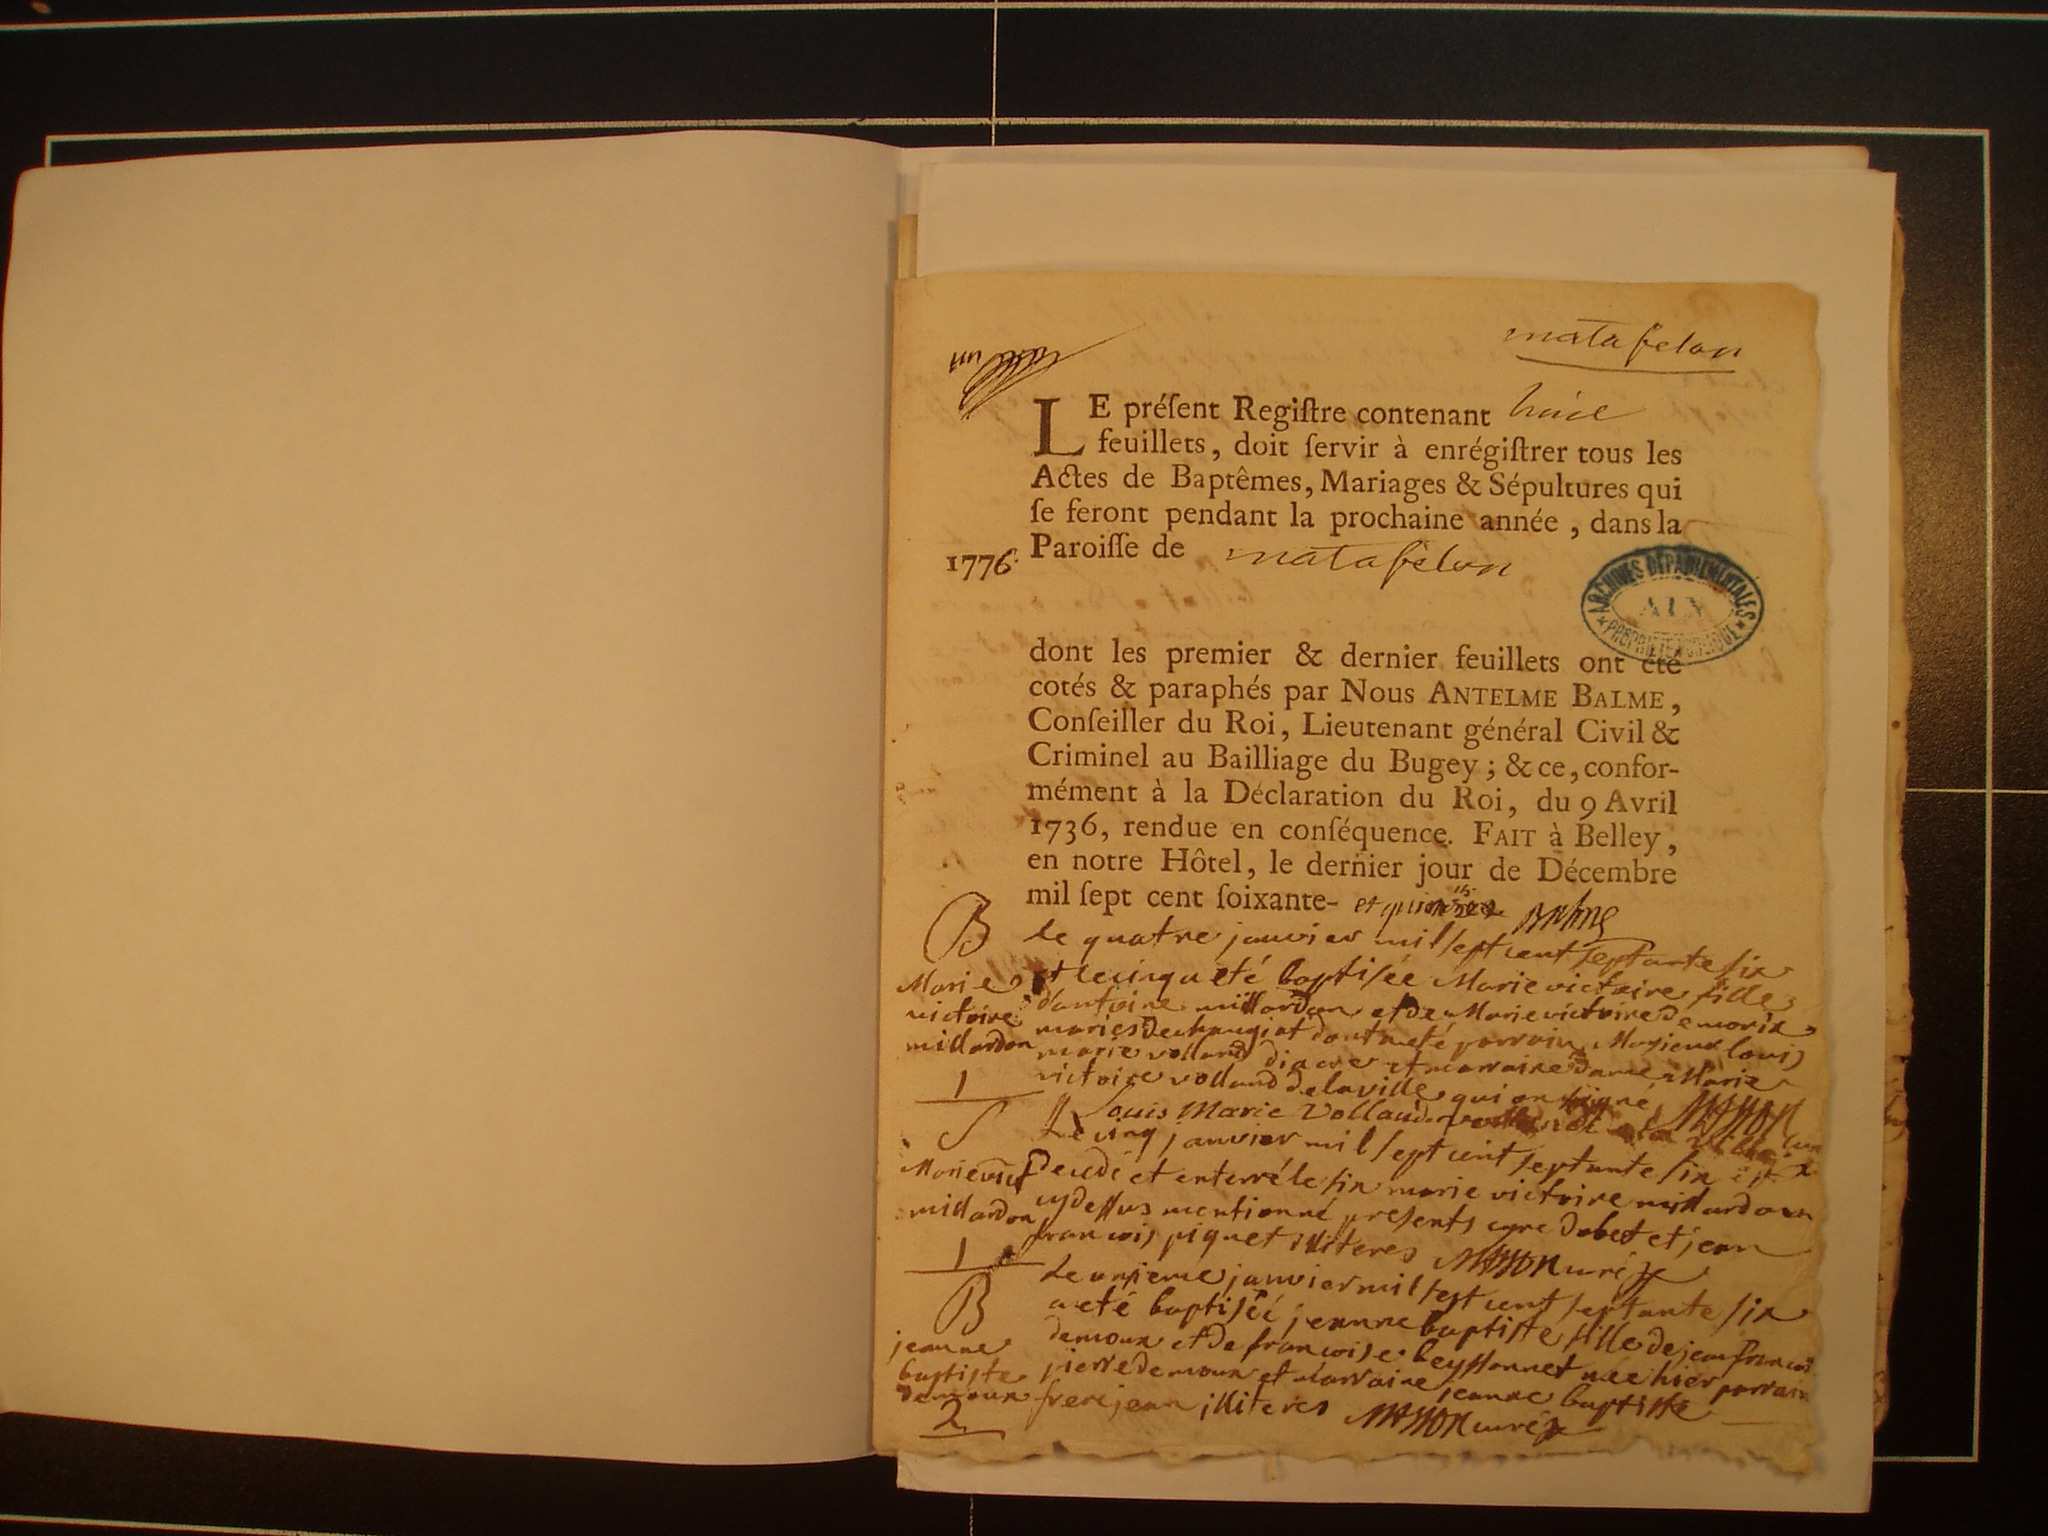 matafelon
LE préſent Regiſtre contenant huit
feuillets, doit ſervir à enrégiſtrer tous les
Actes de Baptêmes, Mariages & Sépultures qui
ſe feront pendant la prochaine année, dans la
1776. Paroiſſe de matafelon
ARCHIVES DÉPARTEMENTALES
AIN
PROPRIÉTÉ PUBLIQUE
dont les premier & dernier feuillets ont été
cotés & paraphés par Nous ANTELME BALME,
Conſeiller du Roi, Lieutenant général Civil &
Criminel au Bailliage du Bugey; & ce, confor-
mément à la Déclaration du Roi, du 9 Avril
1736, rendue en conſéquence. FAIT à Belley,
en notre Hôtel, le dernier jour de Décembre
mil ſept cent ſoixante- et quinze Balme
B le quatre janvier mil sept cent septante six
Marie et le cinq eté baptisée Marie victoire fille
victoire d'antoine millardon et de Marie victoire demorix
millardon mariés dechangiat dont a eté parrain Monsieur louis
marie volland diacre et marraine dame Marie
1 victoire volland delaville qui on signé MASSON
Louis Marie Volland
S Le cinq janvier mil sept cent septante six est
Marie vict Decedé et enterré le six marie victoire millardon
millardon cydessus mentionné presents cyre dobet et jean
francois piquet illiteres MASSON curé
1
B Le onzieme janvier mil sept cent septante six
a eté baptiséé jeanne baptiste fille de jean francois
jeanne demoux et de francoise beyssonnet née hier parrain
baptiste pierre demoux et marraine jeanne baptiste
demoux frerejean illiteres MASSON curé
2